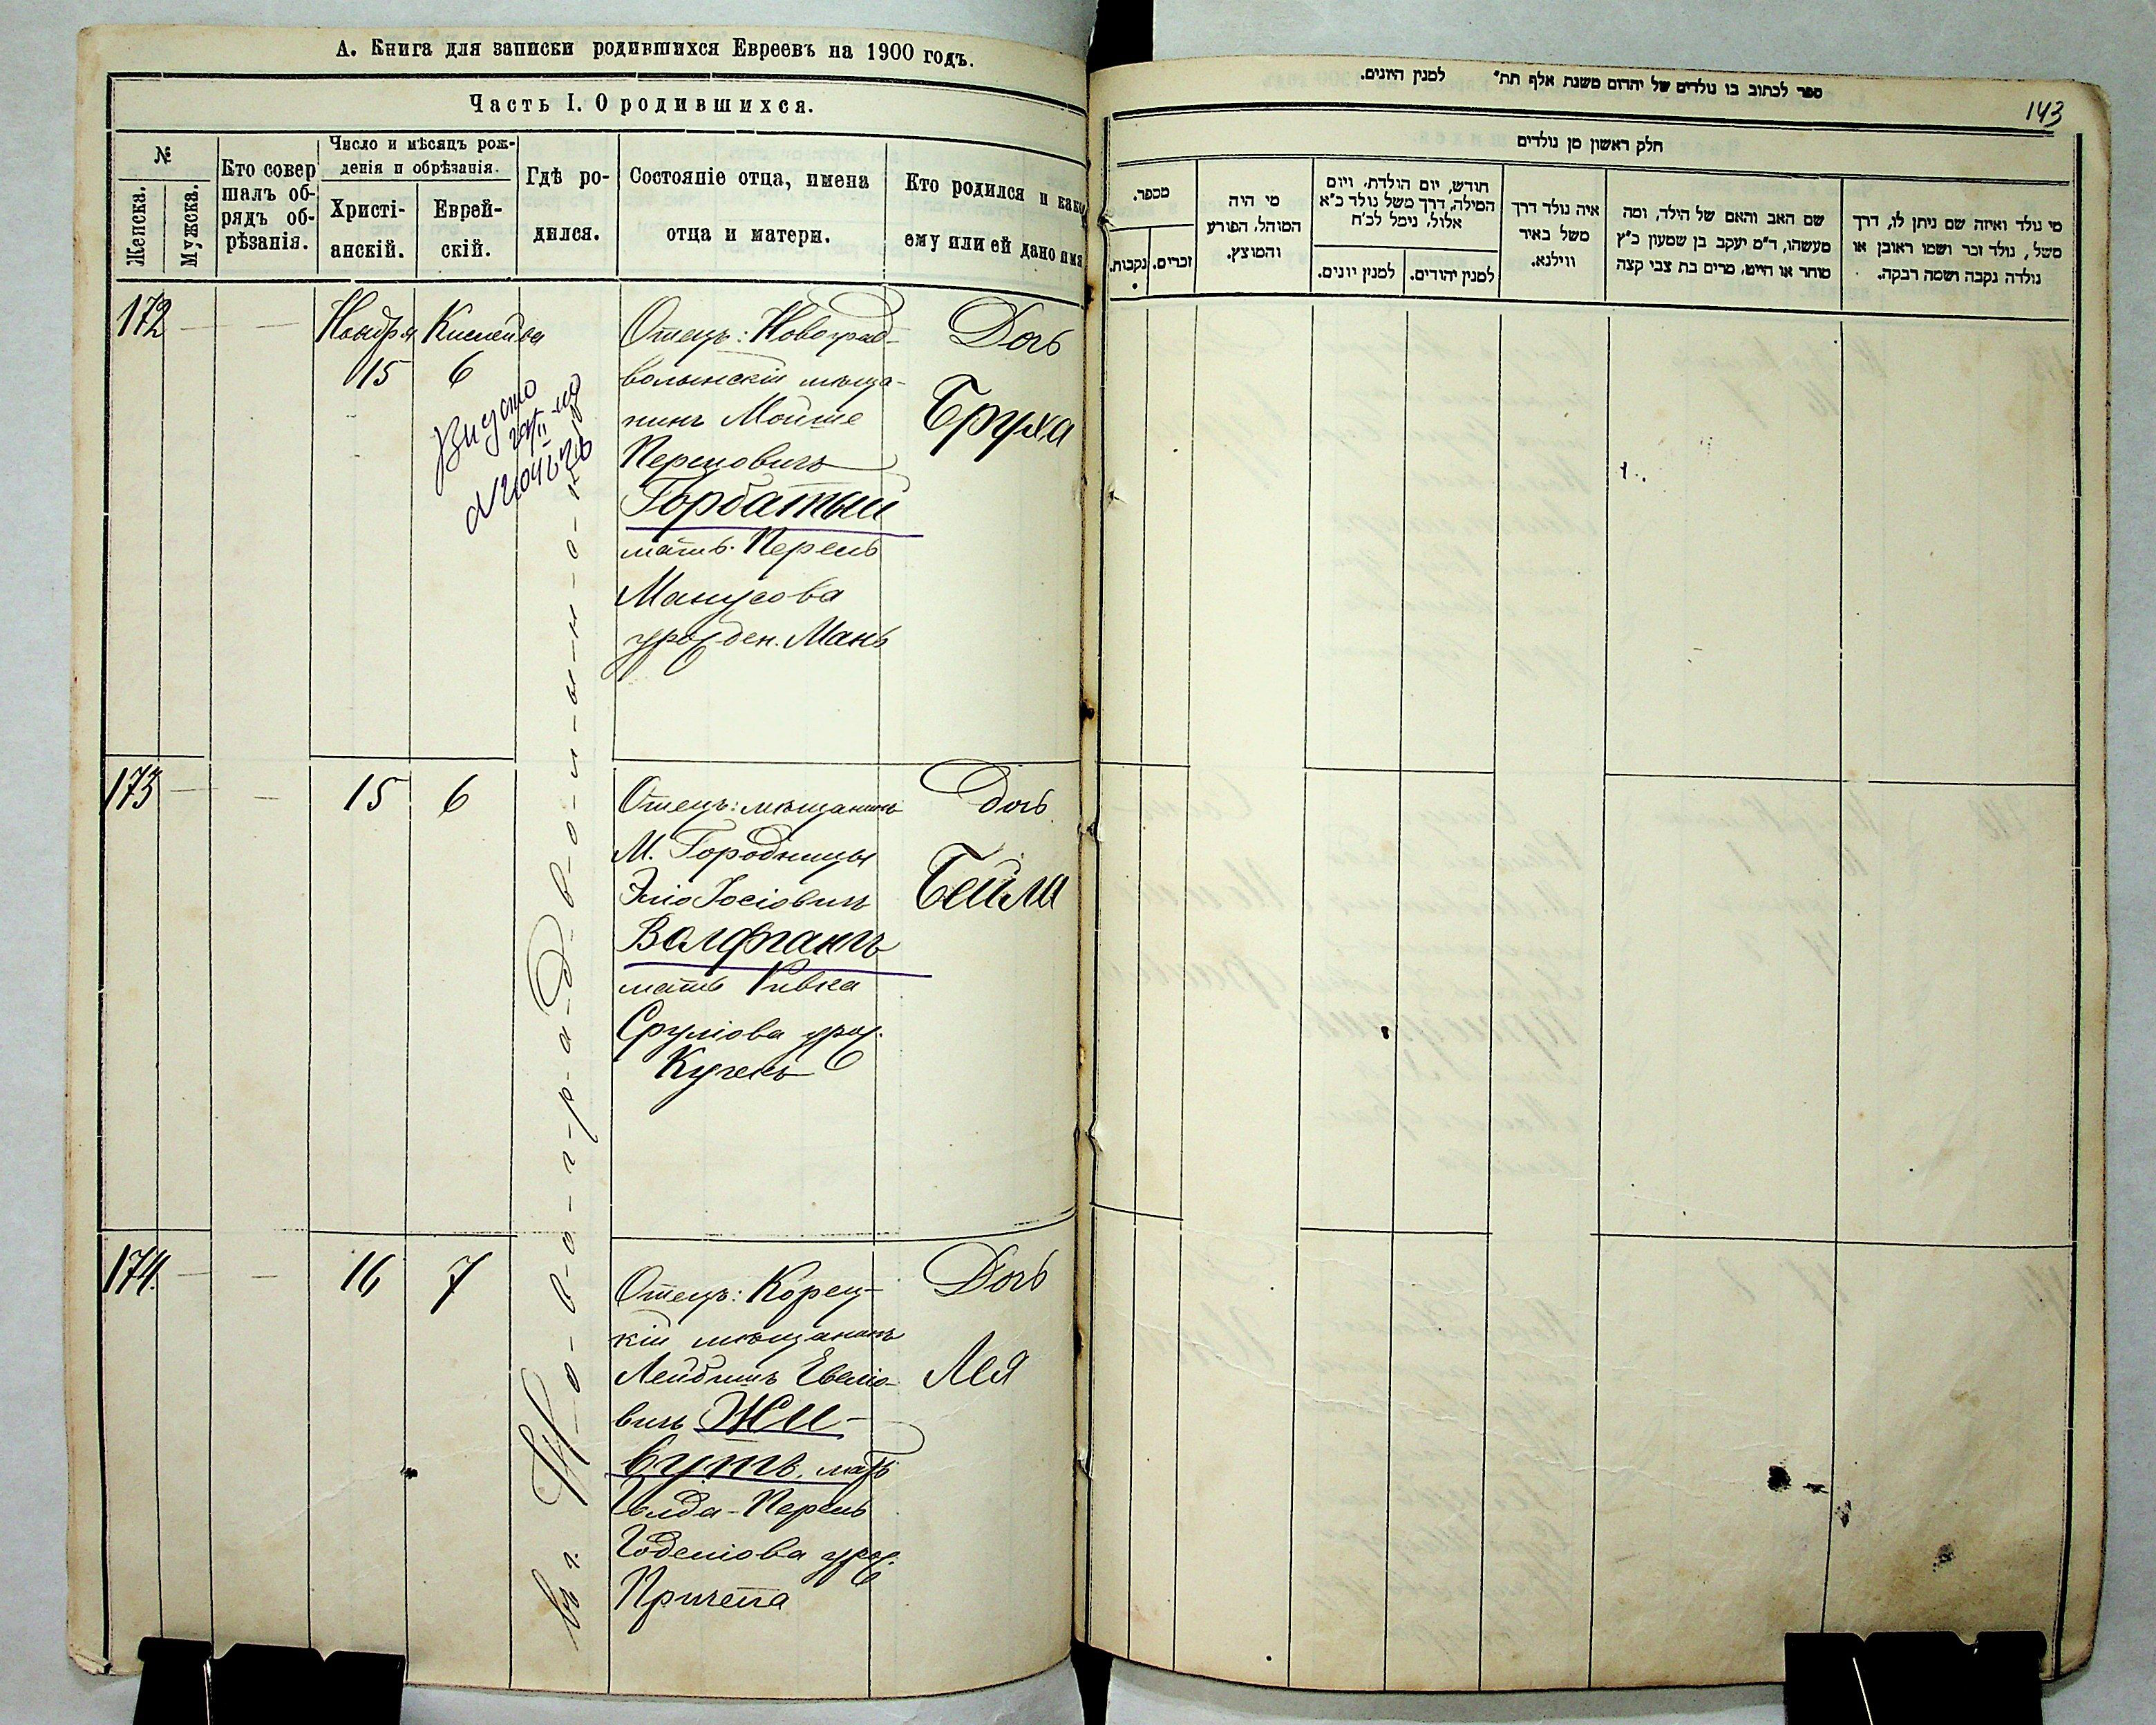 А. Книга для записки родившихся Евреевъ на 1900 годъ.
Часть I. О родившихся.
№
Женска.
Мужска.
Кто совер
шалъ об-
рядъ об-
рѣзанія.
Число и мѣсяцъ рож-
денія и обрѣзанія.
Христі-
анскій.
Еврей-
скій.
Гдѣ ро-
дился.
Состояніе отца, имена
отца и матери.
Кто родился и како
ему или ей дано имя
172
Ноября
15
Кислева
6
въ г. Н-о-в-о-г-р-а-д-в-о-л-ы-н-с-к
Отецъ: Новоград-
волынскій мѣща-
нинъ Мойше
Перцовичъ
Горбатый
мать: Перель
Манусова
урожден. Мань
Дочь
Бруха
173
15
6
Отецъ: мѣщанинъ
М. Городницы
Эліо Іосіовичъ
Волфманъ
мать Ривка
Срулiова урож.
Кучеръ
Дочь
Бейла
174.
16
7
Отецъ: Корец-
кій мѣщанинъ
Лейбишъ Евелiо-
вичъ Жи-
вутъ, мать
Голда-Перель
Годелiова урож.
Причепа
Дочь
Лея
ספר לכתוב בו נולדים של יהדום משנת אלף תת״ למנין היונים.
143
חלק ראשון מן נולדים
מספר.
נקבות.
זכרים.
מי היה
המוהל, הפורע
והמוצץ.
חודש, יום הולדת, ויום
המילה, דרך משל נולד כ״א
אלול, נימל לכ״ח
למנין יונים.
למנין יהודים.
איה נולד דרך
משל באיר
ווילנא.
שם האב והאם של הילד, ומה
מעשהו, ד״מ יעקב בן שמעון כ״ץ
סוחר או חייט, מרים בת צבי קצה
מי נולד ואיזה שם ניתן לו, דרך
משל, נולד זכר ושמו ראובן או
נולדה נקבה ושמה רבקה.